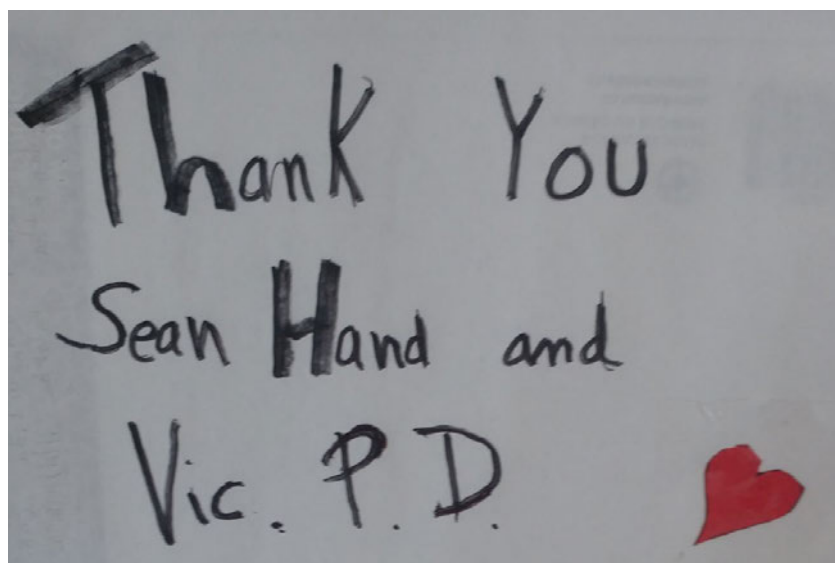 Thank You
Sean Hand and
Vic. P. D.